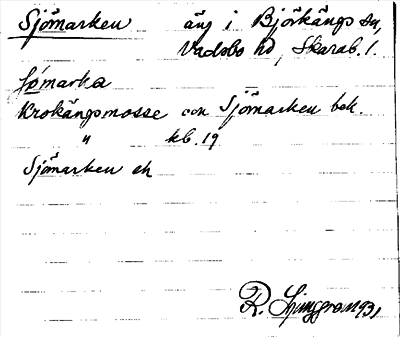 Sjömarken äng i Björkängs sn,
Vadsbo hd, Skarab. l.
Krokängsmosse och Sjömarken beh.
" kb. 19
Sjömarken eh
R. Ljunggren 1931